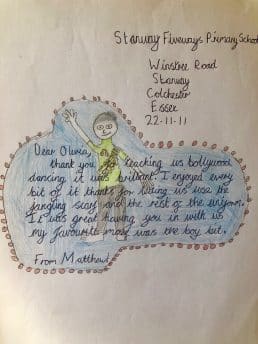 Stanway Fiveways Primary School
Winstree Road
Stanway
Colchester
Essex
22-11-11
Dear Olivia,
thank you for teaching us bollywood
dancing it was brilliant. I enjoyed every
bit of it thanks for letting us use the
jangling scarfs and the rest of the uniform.
It was great having you in with us
my favourite most was the boy bit.
From Matthew